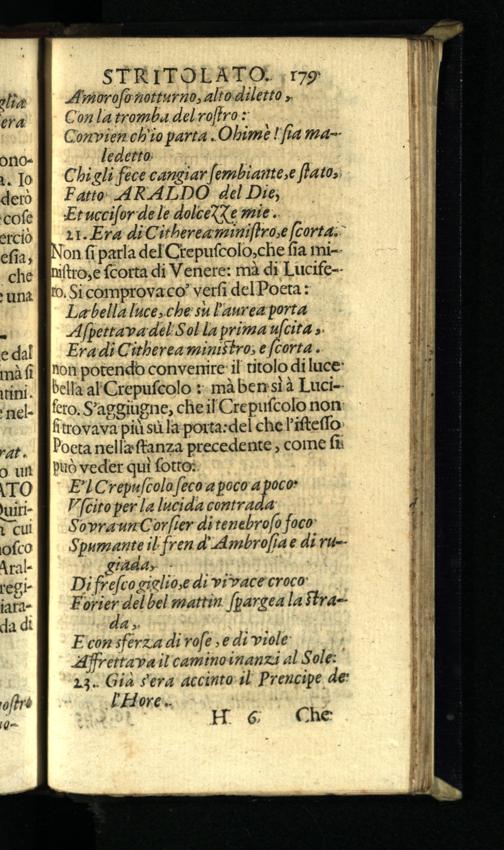 STRITOLATO. 179
Amoroso notturno, alto diletto,
Con la tromba del rostro:
Convien ch'io parta. Ohimè! sia ma-
ledetto
Chi gli fece cangiar sembiante, e stato,
Fatto ARALDO del Die,
Et uccisor de le dolcezze mie.
21. Era di Citherea ministro, e scorta.
Non si parla del Crepuscolo, che sia mi-
nistro, e scorta di Venere: mà di Lucife-
ro. Si comprova co' versi del Poeta:
La bella luce, che sù l'aurea porta
Aspettava del Sol la prima uscita,
Era di Citherea ministro, e scorta.
non potendo convenire il titolo di luce
bella al Crepuscolo: mà ben sì à Luci-
fero. S'aggiugne, che il Crepuscolo non
si trovava più sù la porta: del che l'istesso
Poeta nella stanza precedente, come si
può veder quì sotto.
E'l Crepuscolo seco a poco a poco
Vscito per la lucida contrada
Sovra un Corsier di tenebroso foco
Spumante il fren d'Ambrosia e di ru-
giada,
Di fresco giglio, e di vivace croco
Forier del bel mattin spargea la stra-
da,
E con sferza di rose, e di viole
Affrettava il camino inanzi al Sole.
23. Già s'era accinto il Prencipe de
l'Hore.
H 6 Che
glia
era
ono-
a. Io
derò
cose
erciò
esia,
che
e una
e dal
mà si
atini.
e nel-
rat.
o un
ATO
Quiri-
a cui
nosco
Aral-
regi-
iara-
da di
nostro
no-